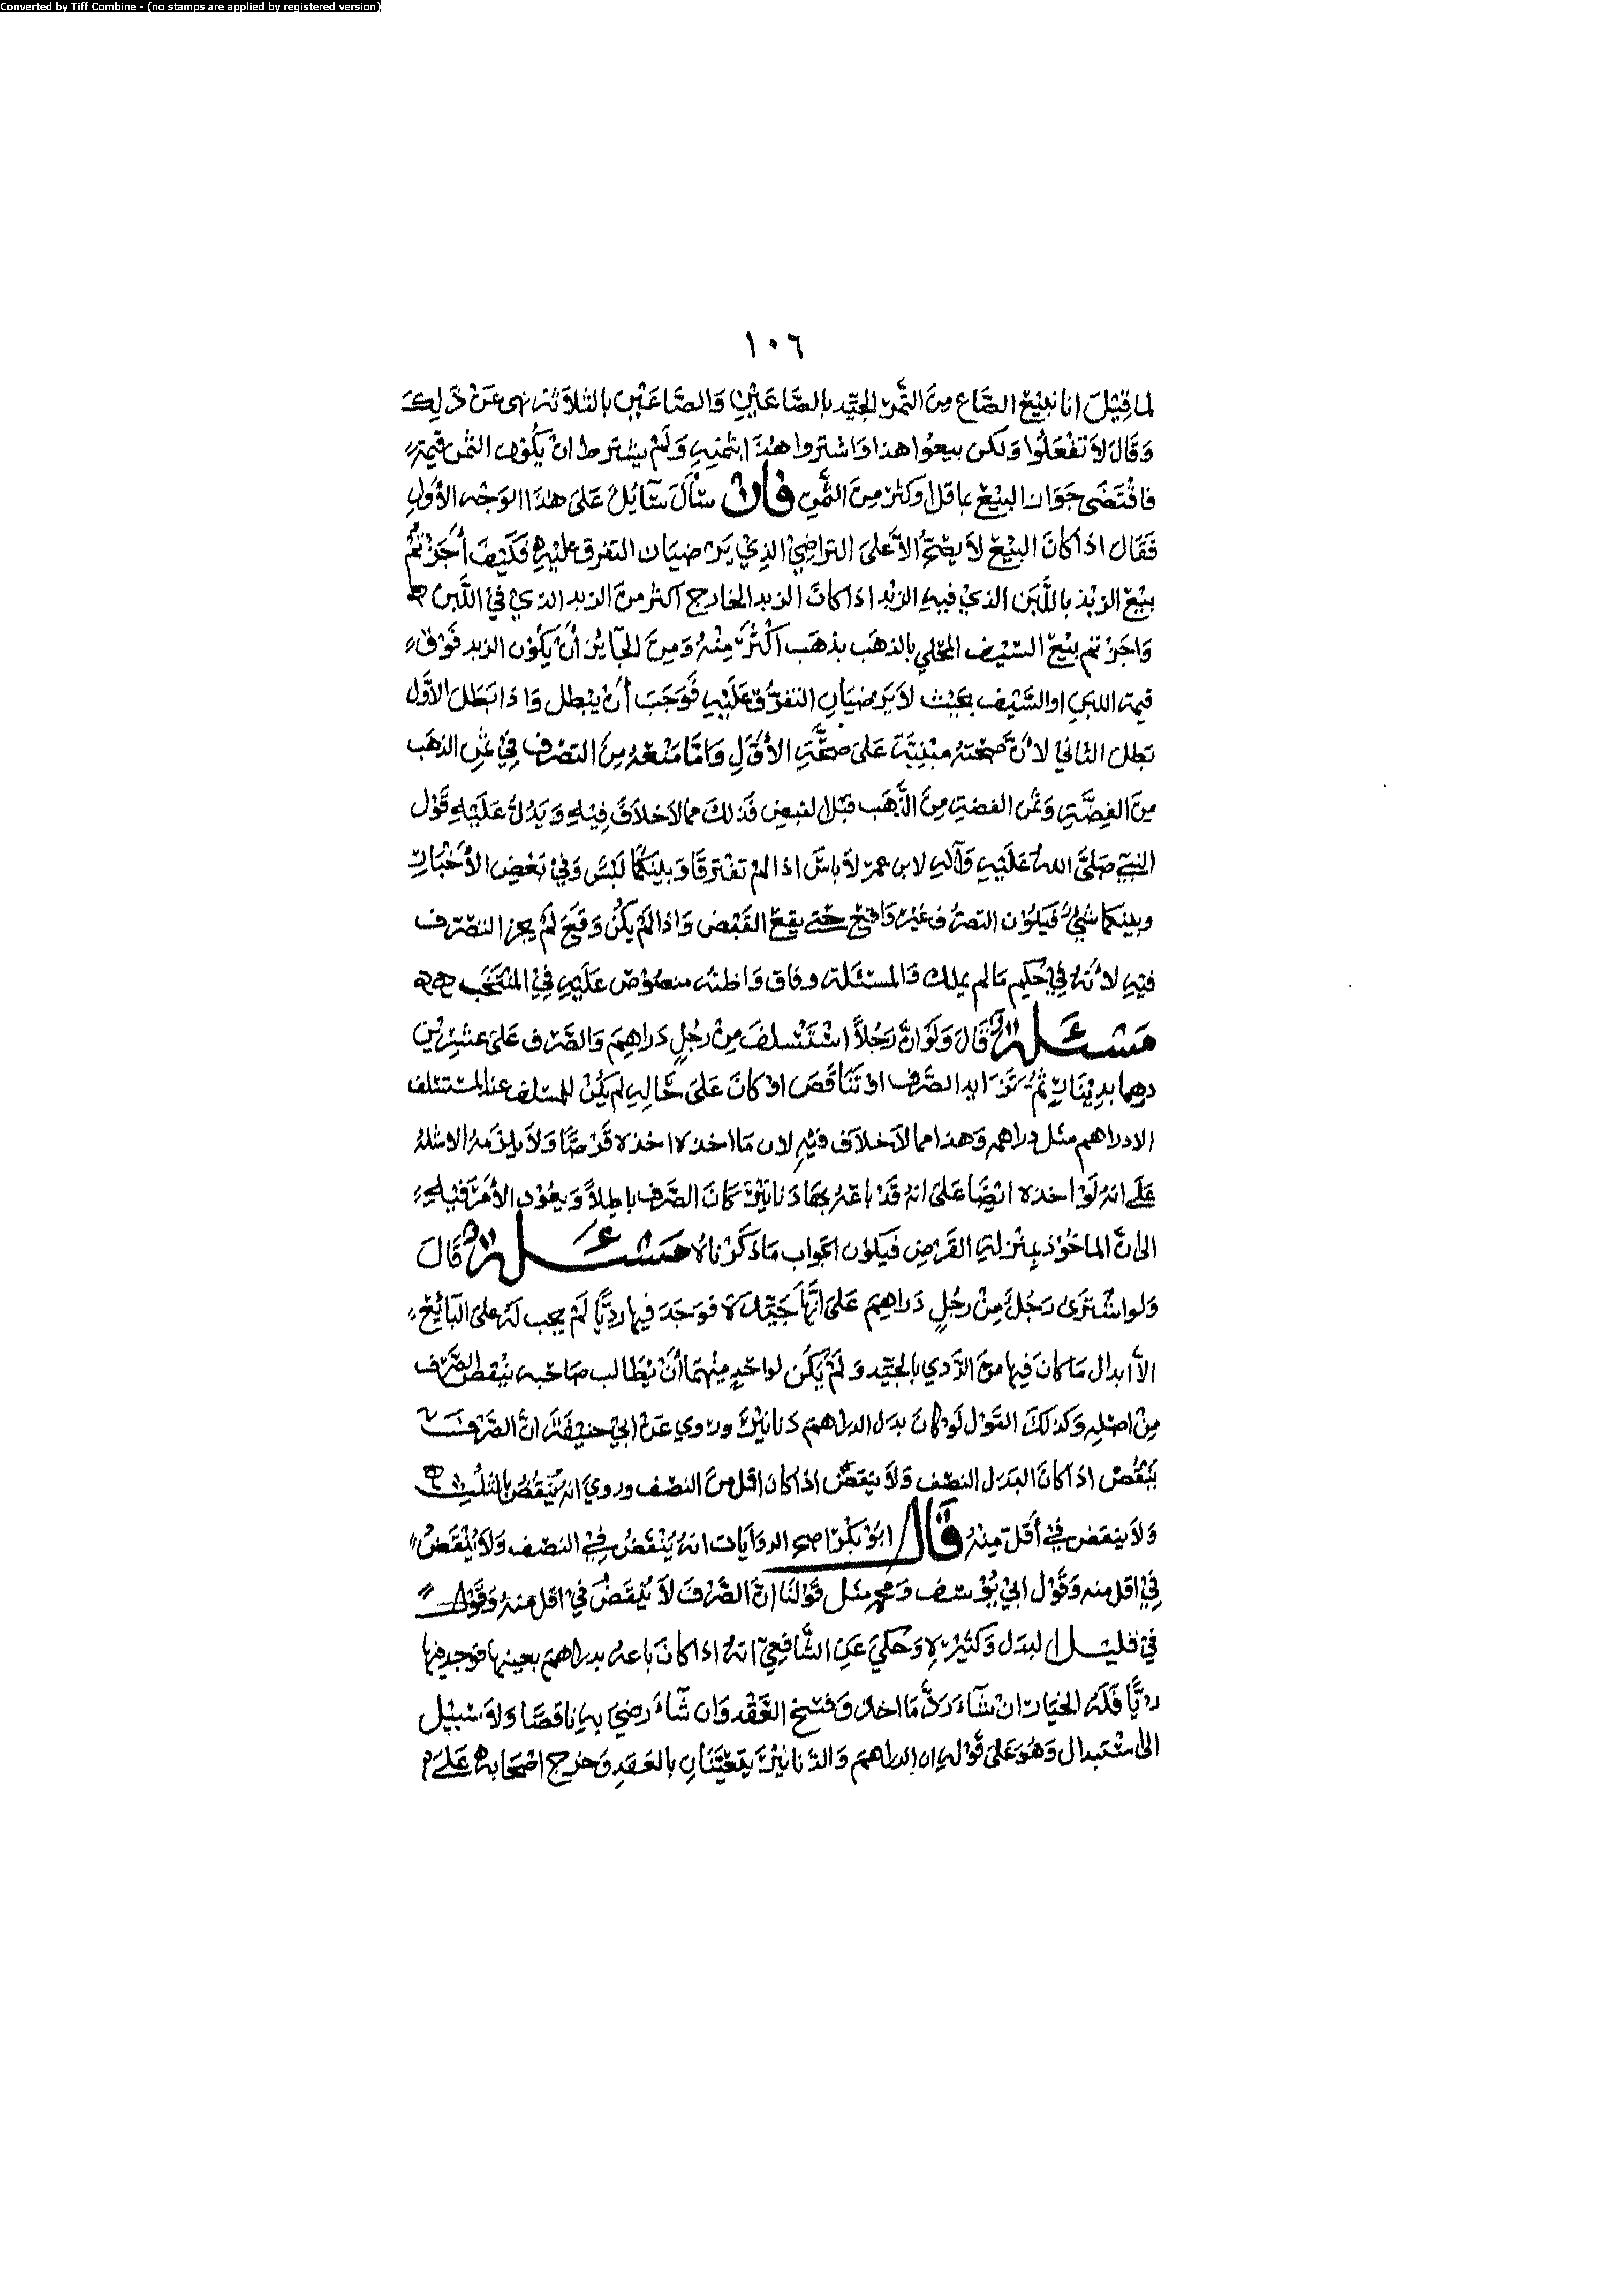 Converted by Tiff Combine - (no stamps are applied by registered version)
١٠٦
لما قِيْلَ انا نبيْعُ الصَّاع مِنَ التَّمر الجيِّد بالصَّاعَيْنِ وَالصَّاعَيْنِ بالثلاثة نهى عَنْ ذَلِكَ
وَقَالَ لاَ تَفْعَلُوا وَلكن بيعُوا هذا وَاشتروا هذَا بثمنِهِ وَلَمْ يشترط انْ يكُون الثمن قيمته
فاقْتَضَى جَوَاز البيْعِ باقل وَكثر مِنَ الثَّمنِ فان سَأَلَ سَآئِلٌ عَلى هَذَا الوَجْه الأَوَّلِ
فَقَالَ اذا كَانَ البَيْعُ لاَ يصحُّ الاَّ عَلى التراضِيْ الذِيْ يَرْضيَان التفرق عليْهِ فكَيْفَ أَجَزْتُمْ
بيْعَ الزبْد باللَّبَن الذيْ فيهِ الزبْد اذا كانَ الزبد الخارج اكثر منَ الزبد الذيْ فيْ اللَّبن
وَاجَزْتم بيْعَ السَّيْف المحَلي بالذهَب بذهَب اكْثَر مِنْهُ وَمِنَ الجآئز أَنْ يَكُوْن الزبد فَوْقَ
قيمة اللبن او السَّيْف بحَيْث لاَ يَرضيَانِ التفرّق عَلَيْهِ فَوَجَبَ أَنْ يبْطل وَاذا بَطَل الأَوَّل
بَطل الثاني لأَنَّ صحّتهُ مبْنِيَّة عَلى صِحَّةِ الأَوَّلِ وَامَّا مَنْعُهُ مِنَ التصَرّف فِيْ ثمنِ الذهَب
مِنَ الفِضَّةِ وَثمن الفضة مِنَ الذَّهَب قبْل القبض فَذلكَ مما لاَ خلاَفَ فِيْهِ وَيَدُلُّ عَلَيْهِ قَوْل
النبيّ صَلَّى اللهُ عَلَيْهِ وَآلهِ لابن عمر لاَ باسَ اذا لمْ تفترقَا وَبينَكُمَا لَبْسٌ وَفيْ بَعْضِ الأَخْبَارِ
وبينكما شيْءٌ فيَكُوْن التصرُّف غيْر وَاقِعٍ حَتى يقعَ القَبْض وَاذا لَمْ يكُنْ وَقَعَ لَمْ يجز التصَرّف
فيْهِ لأَنَّهُ فِيْ حُكمِ مَا لم يملك وَالمسْئلة وفاق وَاظنّه منصُوْص عَلَيْهِ فِيْ المنتَخَب
مَسْئَلَةٌ قَالَ وَلَوْ انَّ رَجُلاً اسْتَسْلفَ مِنْ رَجُلٍ دَراهِمَ وَالصَّرْف عَلى عشْرِيْن
درهما بدِيْنَارٍ ثُمَّ تَزَايد الصَّرْف اوْ تَنَاقَصَ اوْ كانَ عَلى حَالِهِ لم يَكُنْ للمسْلف عند المسْتسْلف
الا دراهم مثل دراهمه وَهذا مما لاَ خلاَف فيْهِ لان مَا اخذه اخذه قَرْضًا وَلاَ يلزَمهُ الا مثلهُ
عَلى انهُ لَوْ اخذه ايْضًا عَلى انهُ قَدْ باعَهُ بهَا دَنانيْرَ كانَ الصَّرْف باطِلاً وَيعُوْد الأَمْر فيْهِ
الى انَّ الماخُوْذ بمنْزلةِ القَرْضِ فيَكوْن الجَواب مَا ذكَرْناهُ مَسْئَلَةٌ قَالَ
وَلو اشْتَرَى رَجُلٌ مِنْ رَجُلٍ دَراهِمَ عَلى انَّهَا جَيّدَة فوَجَدَ فيهَا ردِيًّا لَمْ يجب لَهُ عَلى البَآئِعِ
الاَّ ابدال مَا كانَ فيهَا منَ الرَّدي بالجيّد وَلَمْ يَكُن لواحِدٍ مِنْهمَا أَنْ يُطَالب صَاحبه بنْقض الصَّرْف
مِنْ اصْلِهِ وَكذلكَ القَوْل لَوْ كانَ بدَل الدراهمَ دَنانيْرَ وروي عَنْ ابيْ حنيْفَةَ انَّ الصَّرْف
ينْقُضُ اذا كانَ البَدَل النصْف وَلاَ ينقضُ اذا كانَ اقل منَ النصْف وروي انهُ ينْقُضُ بالثلُث
وَلاَ ينقض فيْ أَقَلّ مِنْهُ قَالَ ابُوْ بَكْر اصح الروَايَات انهُ يَنْقضُ فِيْ النصْف وَلاَ يَنْقُضُ
فِيْ اقل منه وَقَوْل ابيْ يُوْسف وَمحمد مثل قَوْلنَا انَّ الصَّرْفَ لاَ يُنْقَضُ فيْ اقل منهُ وَقَوْل
فيْ قليْل البدَل وَكثيْرِهِ وَحكيَ عَنِ الشَّافِعِيّ انهُ اذا كانَ باعهُ بدراهمَ بعينهَا فوَجدَ فيهَا
ردِيًّا فَلَهُ الخيَار انْ شآءَ رَدَّ مَا اخذ وَفسَخ العَقْد وَان شآءَ رضيَ بهِ ناقصًا وَلاَ سَبِيْل
الى اسْتبدال وَهُوَ عَلى قَوْلهِ ان الدراهمَ وَالدَّنانيْرَ يتعَيَّنَانِ بالعَقدِ وَخرج اصْحَابه عَلى